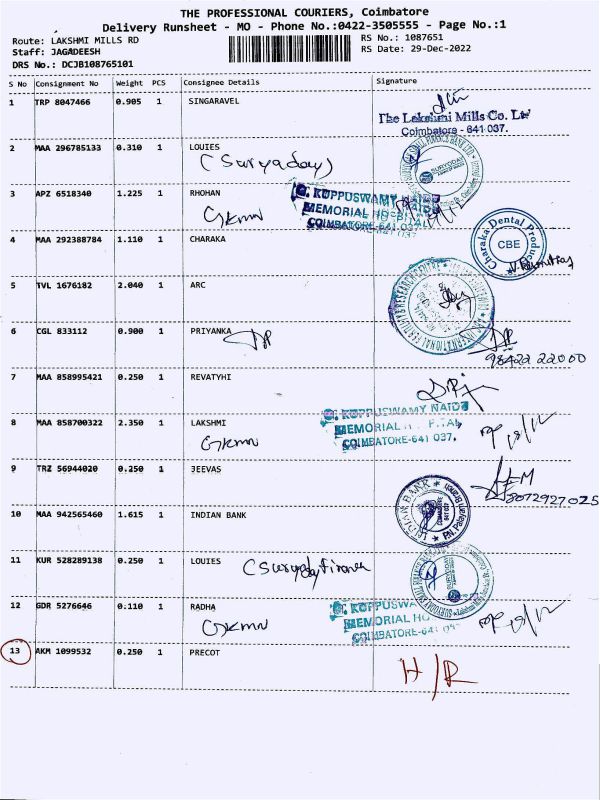 THE PROFESSIONAL COURIERS, Coimbatore
Delivery Runsheet - MO - Phone No.:0422-3505555 - Page No.:1
Route: LAKSHMI MILLS RD RS No.: 1087651
Staff: JAGADEESH RS Date: 29-Dec-2022
DRS No.: DCJB108765101
S No Consignment No Weight PCS Consignee Details Signature
1 TRP 8047466 0.905 1 SINGARAVEL
The Lakshmi Mills Co. Ltd
Coimbatore - 641 037.
2 MAA 296785133 0.310 1 LOUIES
(Suryaday)
3 APZ 6518340 1.225 1 RHOHAN
GKMN
G. KUPPUSWAMY NAIDU
MEMORIAL HOSPITAL
COIMBATORE-641 037
4 MAA 292388784 1.110 1 CHARAKA
Charaka Dental Products
CBE
5 TVL 1676182 2.040 1 ARC
6 CGL 833112 0.900 1 PRIYANKA
DP
98422 22000
7 MAA 858995421 0.250 1 REVATYHI
8 MAA 858700322 2.350 1 LAKSHMI
GKMN
G. KUPPUSWAMY NAIDU
MEMORIAL H PITAL
COIMBATORE-641 037.
9 TRZ 56944020 0.250 1 JEEVAS
8072927025
10 MAA 942565460 1.615 1 INDIAN BANK
INDIAN BANK
11 KUR 528289138 0.250 1 LOUIES
(Suryoday Finance
12 GDR 5276646 0.110 1 RADHA
GKMN
G. KUPPUSWA
MEMORIAL HO
COIMBATORE-641 037
13 AKM 1099532 0.250 1 PRECOT
H/R